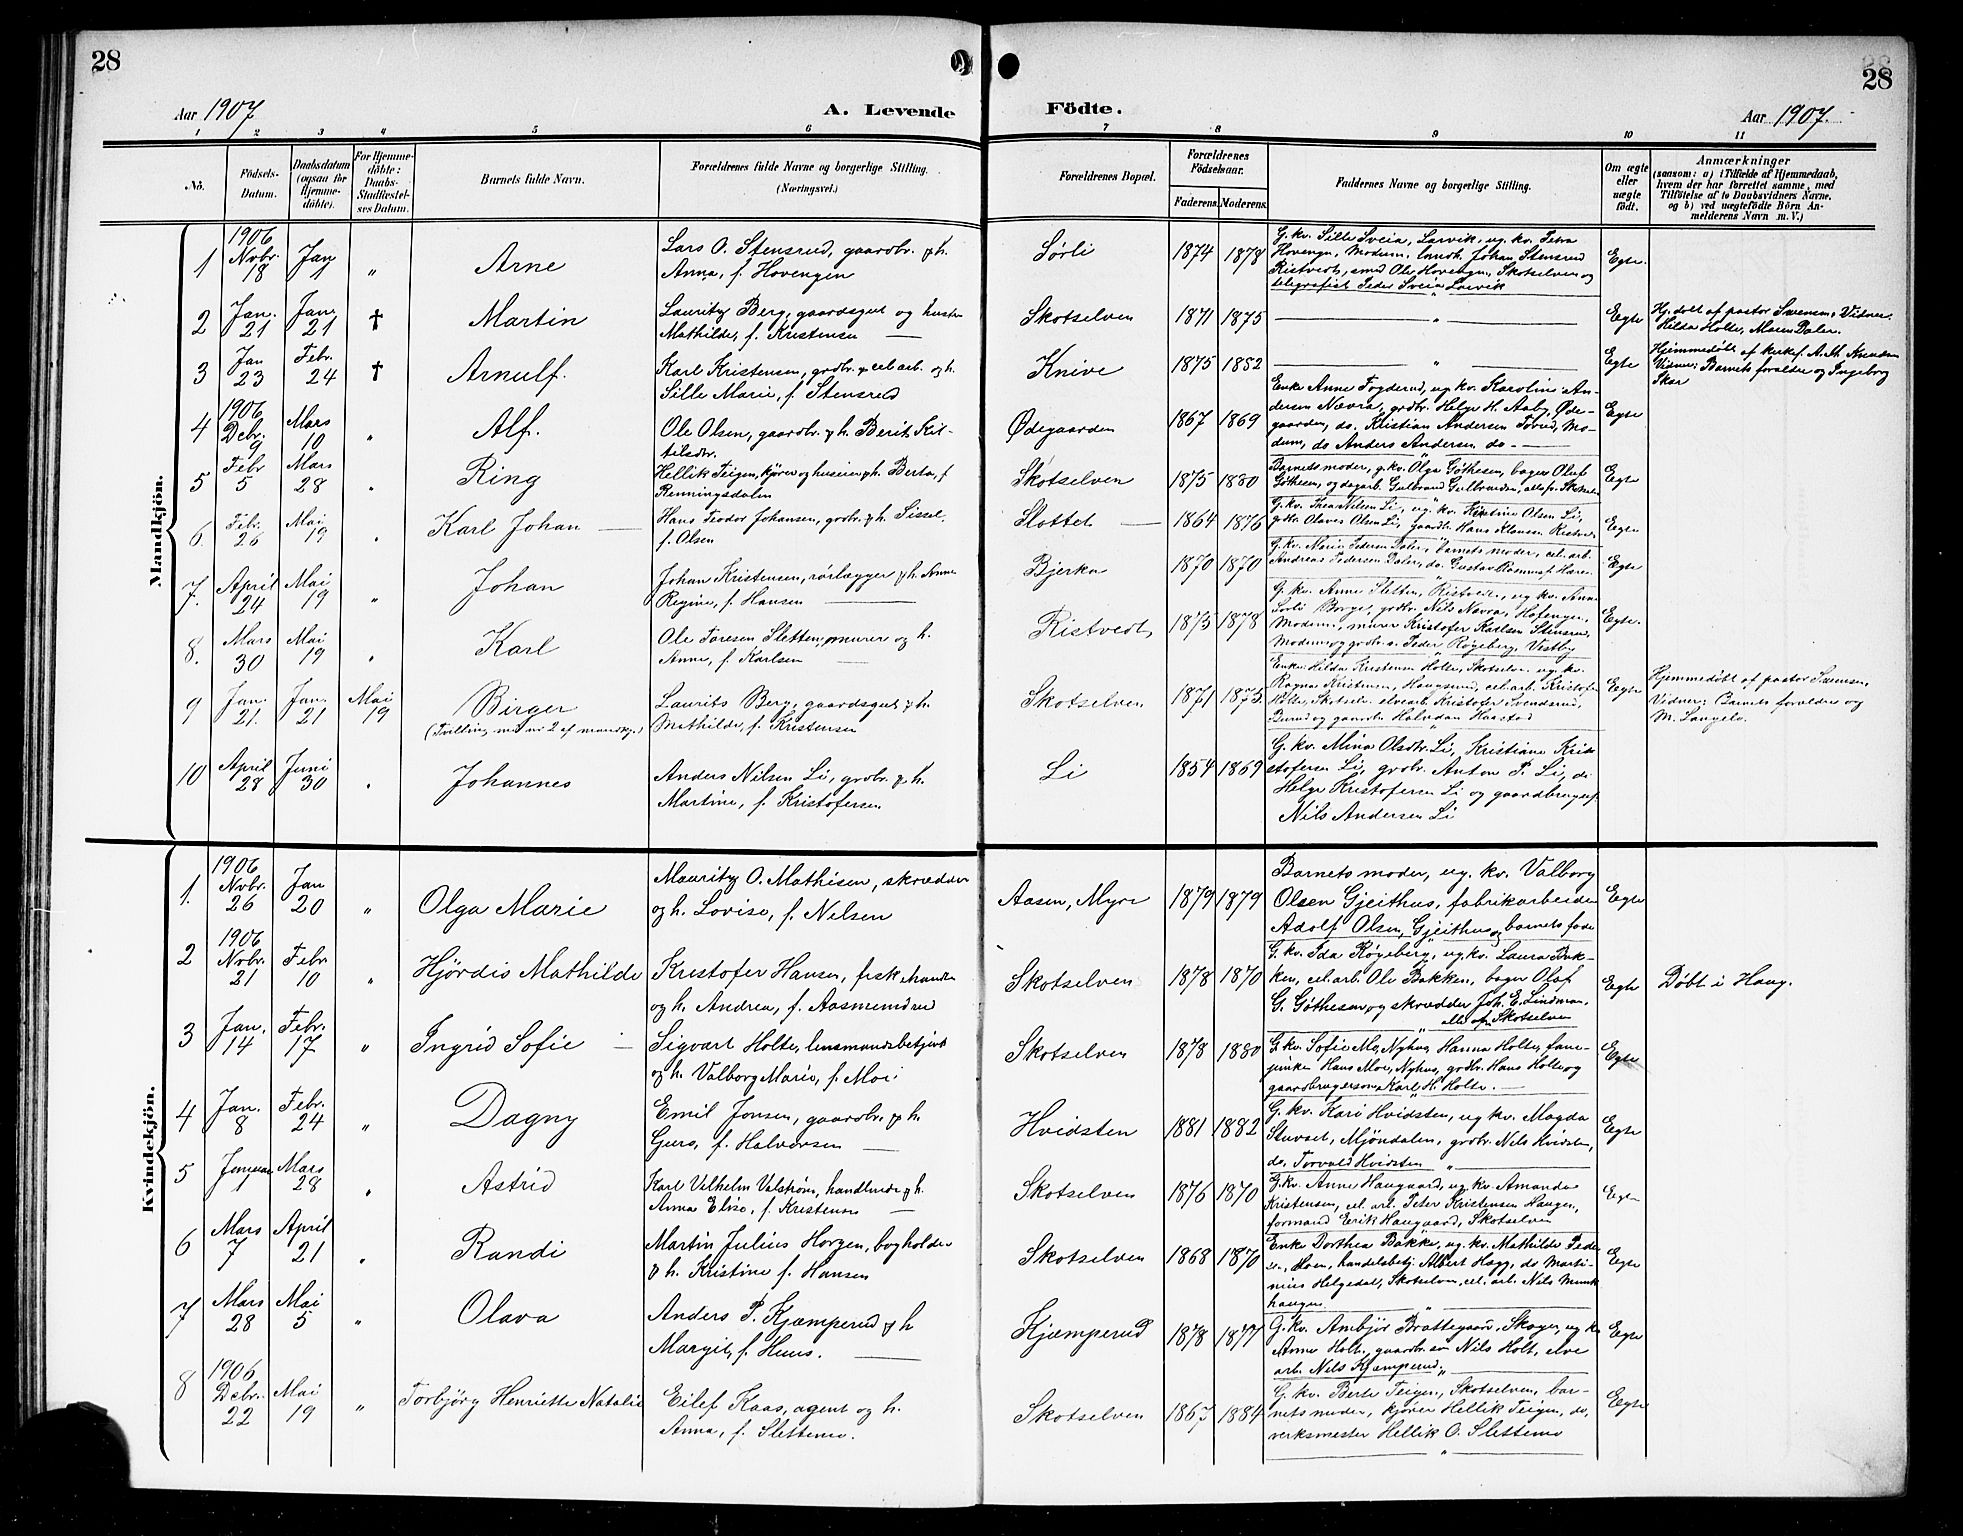 28
28
Aar 1907
A. Levende
Födte.
Aar 1907.
1 2 3 4 5 6 7 8 9 10 11
No.
Födsels-
Datum.
Daabsdatum
(ogsaa för
Hjemme-
döbte).
For Hjemme-
döbte:
Daabs-
Stadfæstel-
ses Datum.
Barnets fulde Navn.
Forældrenes fulde Navne og borgerlige Stilling.
(Næringsvei.)
Forældrenes Bopæl.
Forældrenes
Födselsaar.
Faderens. Moderens.
Faddernes Navne og borgerlige Stilling.
Om ægte
eller
uægte
födt.
Anmærkninger
(saasom: a) i Tilfælde af Hjemmedaab,
hvem der har forrettet samme, med
Tilföielse af to Daabsvidners Navne.
og b) ved uægtefödte Börn An-
melderens Navn m. V.)
Mandkjön.
1
1906
Novbr.
18
Jan
1
"
Arne
Lars O. Stensrud, gaardbr. & h.
Anna, f. Hovengen
Sørli
1874 1878
G. kv. Sille Sveia, Larvik, ug. kv. Petra
Hovengen, Modum, landh. Johan Stensrud
Ristvedt, smed Ole Hovengen, Skotselven og
telegrafist Peder Sveia Larvik
Egte.
2
Jan.
21
Jan.
21
†
Martin
Lauritz Berg, gaardsgut og hustru
Mathilde, f. Kristensen
Skotselven
1871 1875
"
Egte
Hj. døbt af pastor Svensen. Vidner:
Hilda Holte, Maren Daler.
3
Jan
23
Febr.
24
†
Arnulf.
Karl Kristensen, grdbr. & cel. arb. og h.
Sille Marie, f. Stensrud
Knive
1875 1882
"
Egte
Hjemmedøbt af kirkes. A. Th.
Vidner: Barnets forældre og Ingeborg
Skar
4
1906
Debr.
9
Mars
10
"
Alf.
Ole Olsen, gaardbr. & h. Berit Kit-
tilsdtr.
Ødegaarden
1867 1869
Enke Anne Fogderud, ug. kv. Karoline An-
dersen Nævra, grdbr. Helge H. Aaby, Øde-
gaarden, do. Kristian Andersen Tørud, Mo-
dum, do Anders Andersen do.
Egte
5
Febr
5
Mars
28
"
Ring
Hellik Teigen, kjører og husein & h. Berta, f
Renningsdalen
Skotselven
1875 1880
Barnets moder, g. kv. Olga Gøthesen, bager Oluf
Gøthesen, og dagarb. Gulbrand Gulbrandsen, alle fr. Skotselv
Egte
6.
Febr.
26
Mai
19
"
Karl Johan
Hans Teodor Johansen, grdbr. & h. Sissel,
f. Olsen
Slottet
1864 1876
G. kv. Thea Nilsen Li, ug. kv. Kristine Olsen Li,
grdbr Olaves Olsen Li, gaardbr. Hans Klausen Ristved
Egte
7.
April
24
Mai
19
"
Johan
Johan Kristensen, rørlægger & h. Anne
Regine, f. Hansen
Bjerka
1870 1870
G. kv. Marie Pedersen Daler, Barnets moder, cel. arb.
Andreas Pedersen Daler, do. Gustav
Egte
8.
Mars
30
Mai
19
"
Karl
Ole Toresen Sletten, murer og h.
Anne, f. Karlsen
Ristvedt
1875 1878
G. kv. Anne Sletten, Ristvedt, ug kv. Anne
Sørli Borge, grdbr. Nils Nævra, Hofengen,
Modum, murer Kristofer Karlsen Stensrud,
Modum og grdbr. s. Peder Røgeberg, Vestby
Egte.
9
Jan.
21.
Jan.
21
Mai
19
Birger
(Tvilling med nr 2 af mandkj.)
Laurits Berg, gaardsgut & h.
Mathilde, f. Kristensen
Skotselven
1871 1875
Enke Hilda Kristensen Holte, Skotselv. ug. kv.
Ragna Kristensen, Haugsund, cel. arb. Kristofer
Holte, Skotselv. elvearb. Kristofer Svendsrud,
Burud og gaardbr. Halvdan Haastad
Egte
Hjemmedøbt af pastor Svensen,
Vidner: Barnets forældre og
M. Langelv.
10
April
28
Juni
30
"
Johannes
Anders Nilsen Li, grdbr. & h.
Martine, f. Kristofersen
Li
1854 1869
G. kv. Mina Olsdtr. Li, Kristiane Kris
tofersen Li, grdbr. Anton P. Li, do
Helge Kristofersen Li og gaardbrugers.
Nils Andersen Li
Kvindekjön.
1.
1906
Novbr.
26
Jan
20
"
Olga Marie
Mauritz O. Mathisen, skrædder
og h. Lovise, f. Nelsen
Aasen, Myre
1879 1879
Barnets moder, ug. kv. Valborg
Olsen Gjeithus, fabrikarbeider
Adolf Olsen, Gjeithus og barnets fader
Egte
2
1906
Novbr.
21
Febr.
10
"
Hjördis Mathilde
Kristofer Hansen, fiskehandler
og h. Andrea, f. Aasmundrud
Skotselven
1878 1870
G. kv. Ida Røgeberg, ug. kv. Laura Bak-
ken, cel. arb. Ole Bakken, bager Oluf
G. Gøthesen og skrædder Joh. E. Lindman,
alle af Skotselven
Egte
Døbt i Haug.
3
Jan.
14
Febr.
17
"
Ingrid Sofie
Sigvart Holte, lensmandsbetjent
og h. Valborg Marie, f. Moe.
Skotselven
1878 1880
G. kv. Sofie Moe, Nyhus, Hanna Holte, fane-
junker Hans Moe, Nyhus, grdbr. Hans Holte og
gaardbrugersøn Karl H. Holte.
Egte
4
Jan.
8
Febr.
24
"
Dagny
Emil Jonsen, gaardbr. & h.
Guro, f. Halvorsen
Hvidsten
1881 1882
G. kv. Kari Hvidsten, ug kv. Magda
Stuvset, Mjöndalen, grdbr. Nils Hvidsten,
do. Torvald Hvidsten
Egte
5
Januar
1
Mars
28
"
Astrid
Karl Vilhelm Valstrøm, handlende & h.
Anna Elise, f. Kristensen
Skotselven
1876 1870
G. kv. Anne Haugaard, ug. kv. Amanda
Kristensen, cel. arb. Peter Kristensen Haugen,
formand Erik Haugaard, Skotselven
Egte
6
Mars
7
April
21
"
Randi
Martin Julius Horgen, bogholder
& h. Kristine f. Hansen
Skotselven
1868 1870
Enke Dorthea Bakke, ug. kv. Mathilde Peder
sen, Hoen, handelsbetj. Albert Hagg, do Marti-
nius Helgedal, Skotselven, cel. arb. Nils Munk
haugen
Egte
7
Mars
28
Mai
5
"
Olava
Anders P. Kjæmperud & h
Margit, f. Huus.
Kjæmperud
1878 1877
G. kv. Ambjør Brattegaard, Skoger, ug kv
Anne Holt, gaardbr. søn Nils Holt, elve
arb. Nils Kjæmperud
Egte
8
1906
Debr.
22
Mai
19
"
Torbjörg Henriette Natalie
Eilef Kaas, agent og h.
Anna, f. Slettemo.
Skotselven
1867 1884
G. kv. Berte Teigen, Skotselven, bar-
nets moder, kjører Hellik Teigen, do,
verksmester Hellik O. Slettemo
"
Egte